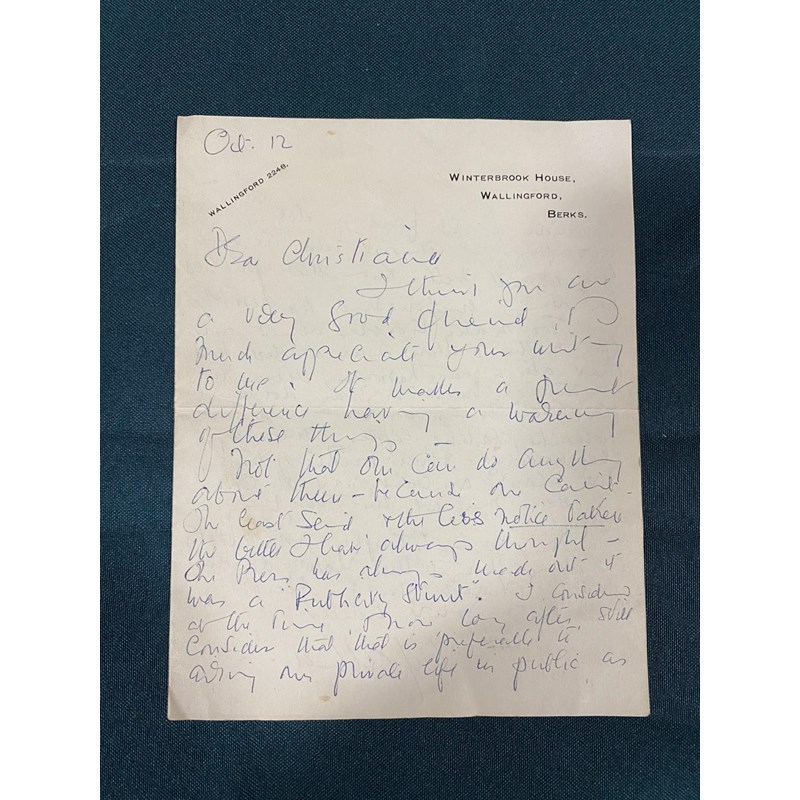 Oct. 12
WALLINGFORD 2248.
WINTERBROOK HOUSE,
WALLINGFORD,
BERKS.
Dear Christianna
I think you are
a very good friend, I
much appreciate your writing
to me. It makes a great
difference having a warning
of these things –
Not that one can do anything
about them – because one can't.
The least said & the less notice taken
the better I have always thought –
The Press has always made out it
was a "Publicity Stunt". I considered
at the time, & now long after, still
consider that that is preferable to
airing one's private life in public, as